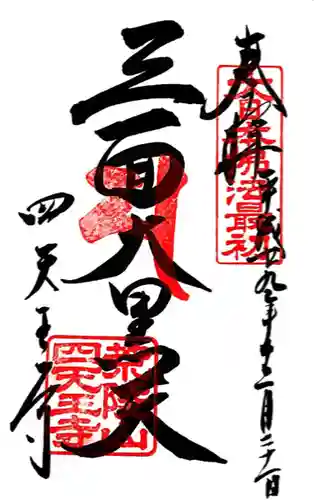 奉拝
大日本佛法最初
平成廿九年十二月二十一日
三面大黒天
四天王寺
荒陵山
四天王寺